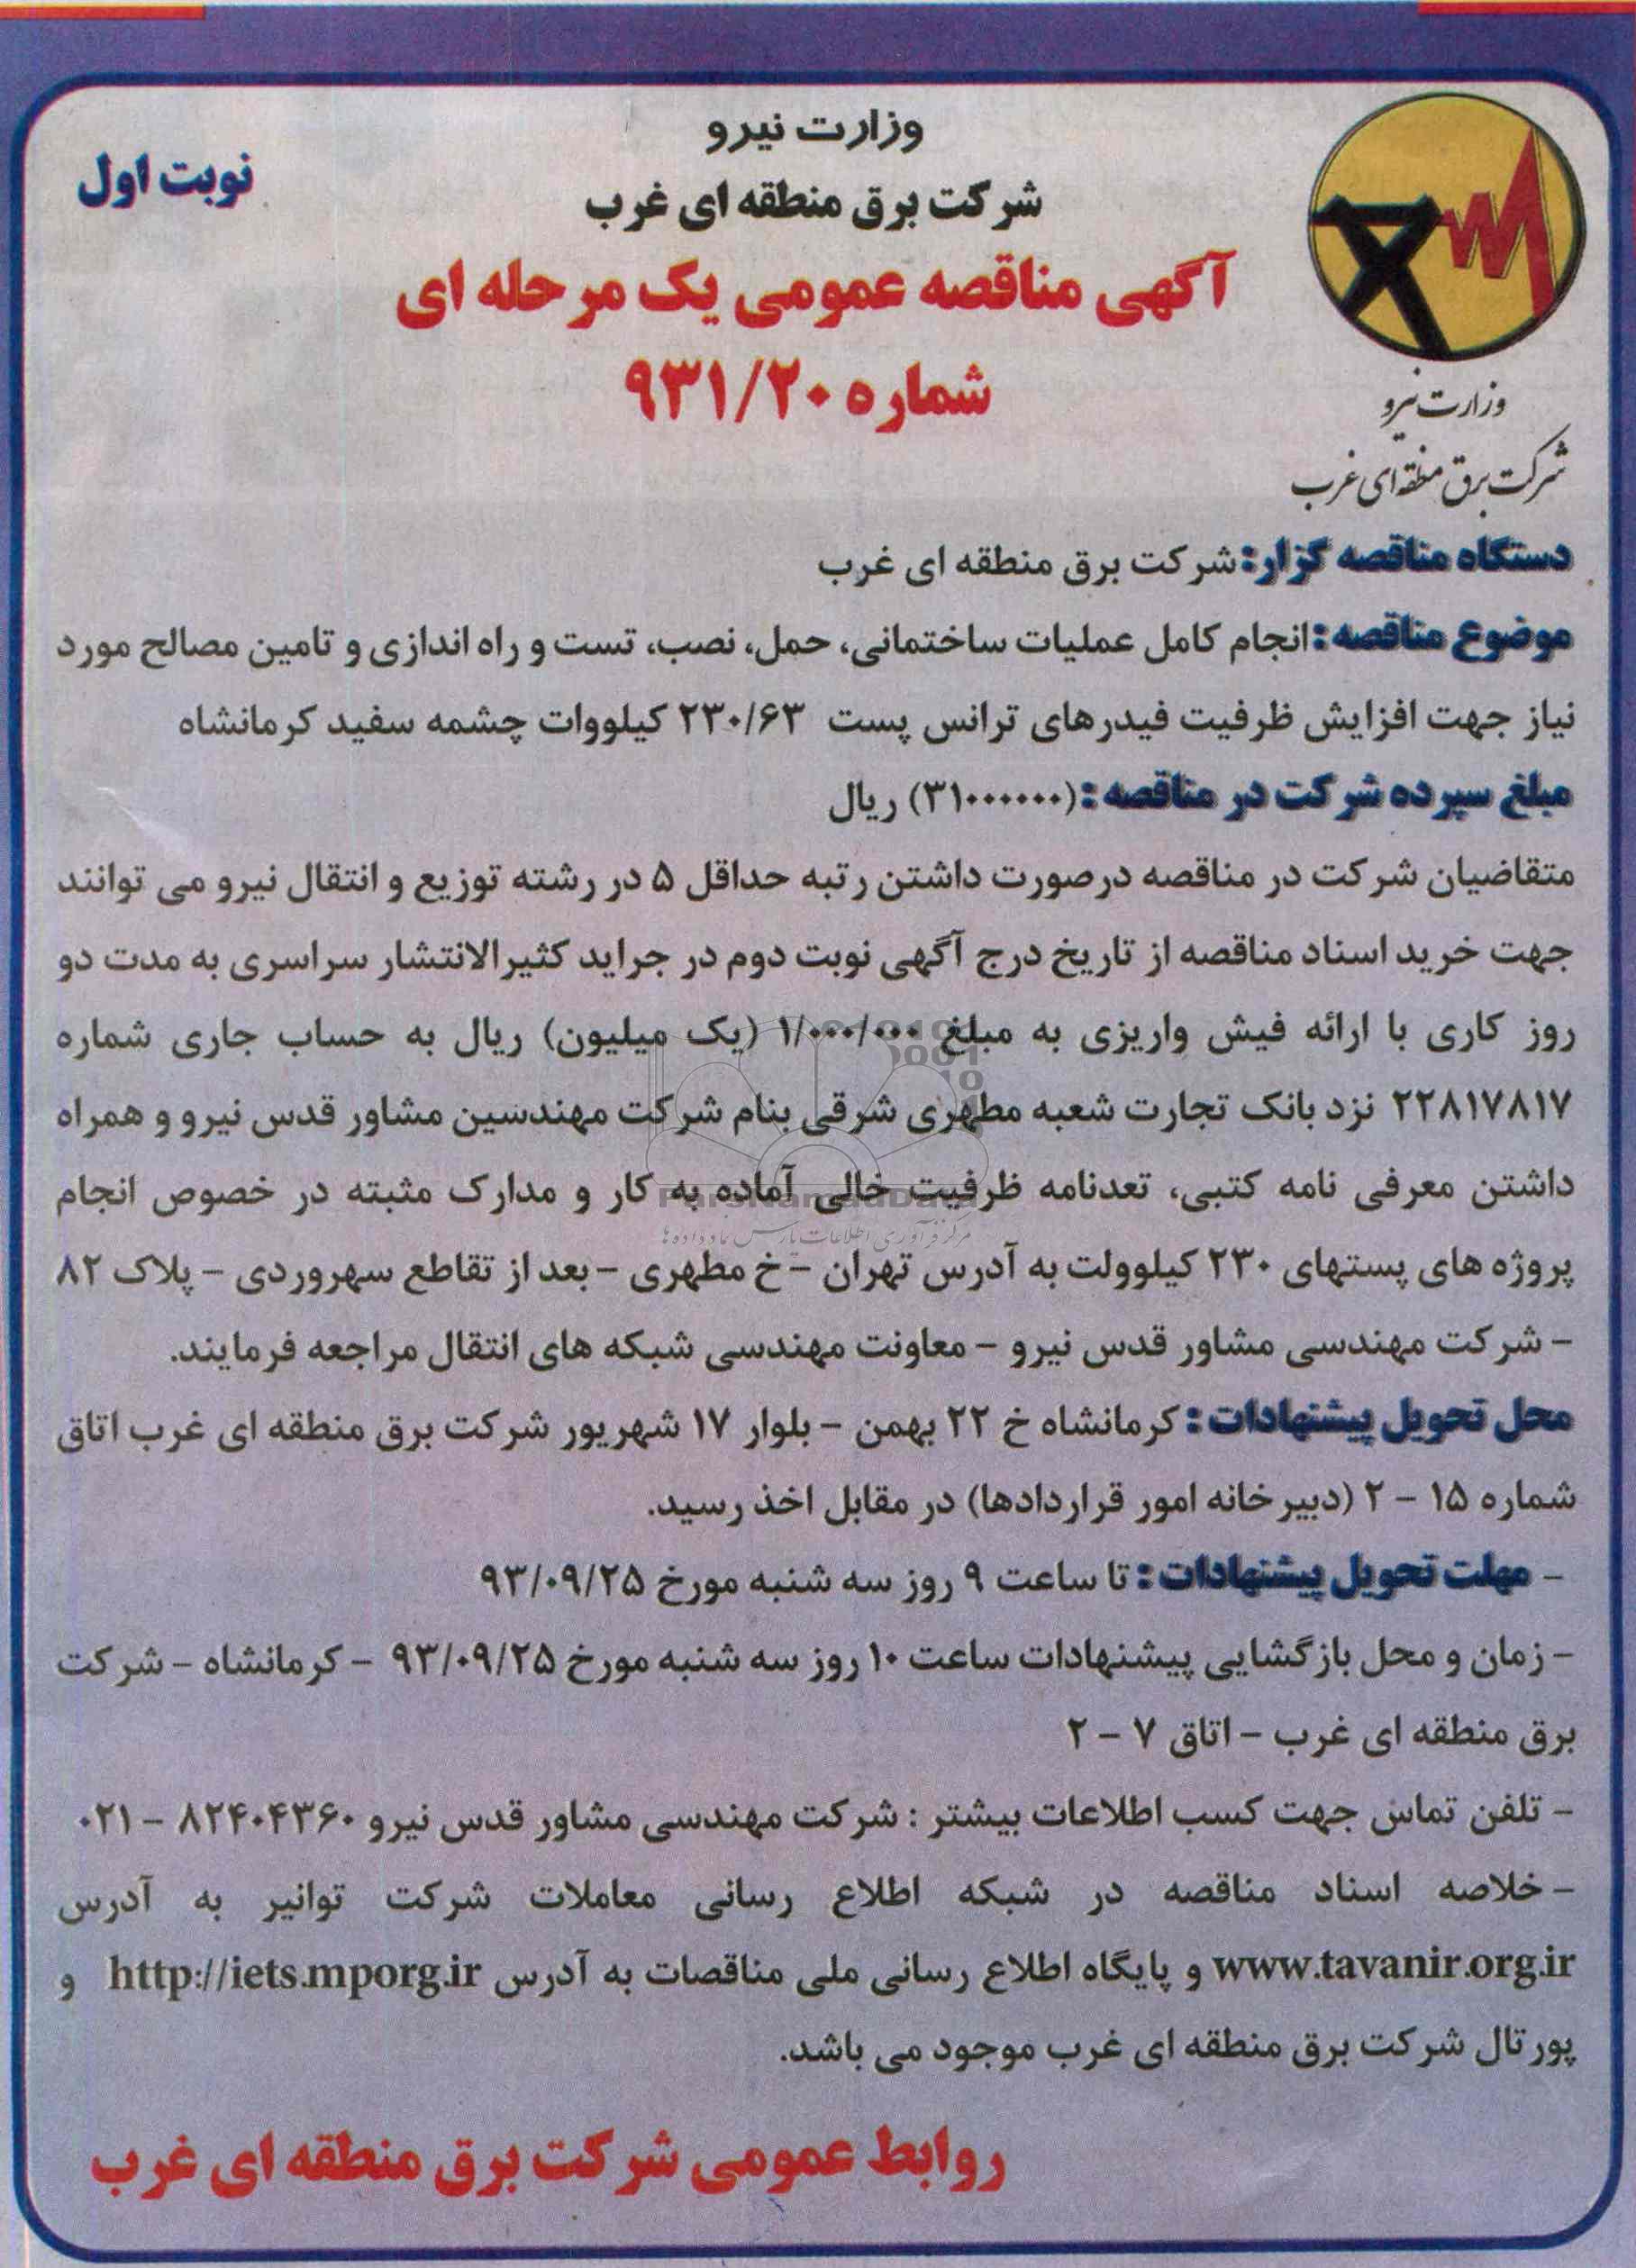 وزارت نیرو
شرکت برق منطقه ای غرب
نوبت اول
آگهی مناقصه عمومی یک مرحله ای
شماره ۹۳۱/۲۰
وزارت نیرو
شرکت برق منطقه ای غرب
دستگاه مناقصه گزار: شرکت برق منطقه ای غرب
موضوع مناقصه: انجام کامل عملیات ساختمانی، حمل، نصب، تست و راه اندازی و تامین مصالح مورد
نیاز جهت افزایش ظرفیت فیدرهای ترانس پست ۲۳۰/۶۳ کیلووات چشمه سفید کرمانشاه
مبلغ سپرده شرکت در مناقصه: (۳۱۰۰۰۰۰۰) ریال
متقاضیان شرکت در مناقصه درصورت داشتن رتبه حداقل ۵ در رشته توزیع و انتقال نیرو می توانند
جهت خرید اسناد مناقصه از تاریخ درج آگهی نوبت دوم در جراید کثیرالانتشار سراسری به مدت دو
روز کاری با ارائه فیش واریزی به مبلغ ۱/۰۰۰/۰۰۰ (یک میلیون) ریال به حساب جاری شماره
۲۲۸۱۷۸۱۷ نزد بانک تجارت شعبه مطهری شرقی بنام شرکت مهندسین مشاور قدس نیرو و همراه
داشتن معرفی نامه کتبی، تعدنامه ظرفیت خالی آماده به کار و مدارک مثبته در خصوص انجام
پروژه های پستهای ۲۳۰ کیلوولت به آدرس تهران - خ مطهری - بعد از تقاطع سهروردی - پلاک ۸۲
- شرکت مهندسی مشاور قدس نیرو - معاونت مهندسی شبکه های انتقال مراجعه فرمایند.
محل تحویل پیشنهادات: کرمانشاه خ ۲۲ بهمن - بلوار ۱۷ شهریور شرکت برق منطقه ای غرب اتاق
شماره ۱۵ - ۲ (دبیرخانه امور قراردادها) در مقابل اخذ رسید.
- مهلت تحویل پیشنهادات: تا ساعت ۹ روز سه شنبه مورخ ۹۳/۰۹/۲۵
- زمان و محل بازگشایی پیشنهادات ساعت ۱۰ روز سه شنبه مورخ ۹۳/۰۹/۲۵ - کرمانشاه - شرکت
برق منطقه ای غرب - اتاق ۷ - ۲
- تلفن تماس جهت کسب اطلاعات بیشتر : شرکت مهندسی مشاور قدس نیرو ۸۲۴۰۴۳۶۰ - ۰۲۱
- خلاصه اسناد مناقصه در شبکه اطلاع رسانی معاملات شرکت توانیر به آدرس
www.tavanir.org.ir و پایگاه اطلاع رسانی ملی مناقصات به آدرس http://iets.mporg.ir و
پورتال شرکت برق منطقه ای غرب موجود می باشد.
روابط عمومی شرکت برق منطقه ای غرب
ParsNamadData
مرکز فرآوری اطلاعات پارس نماد داده ها